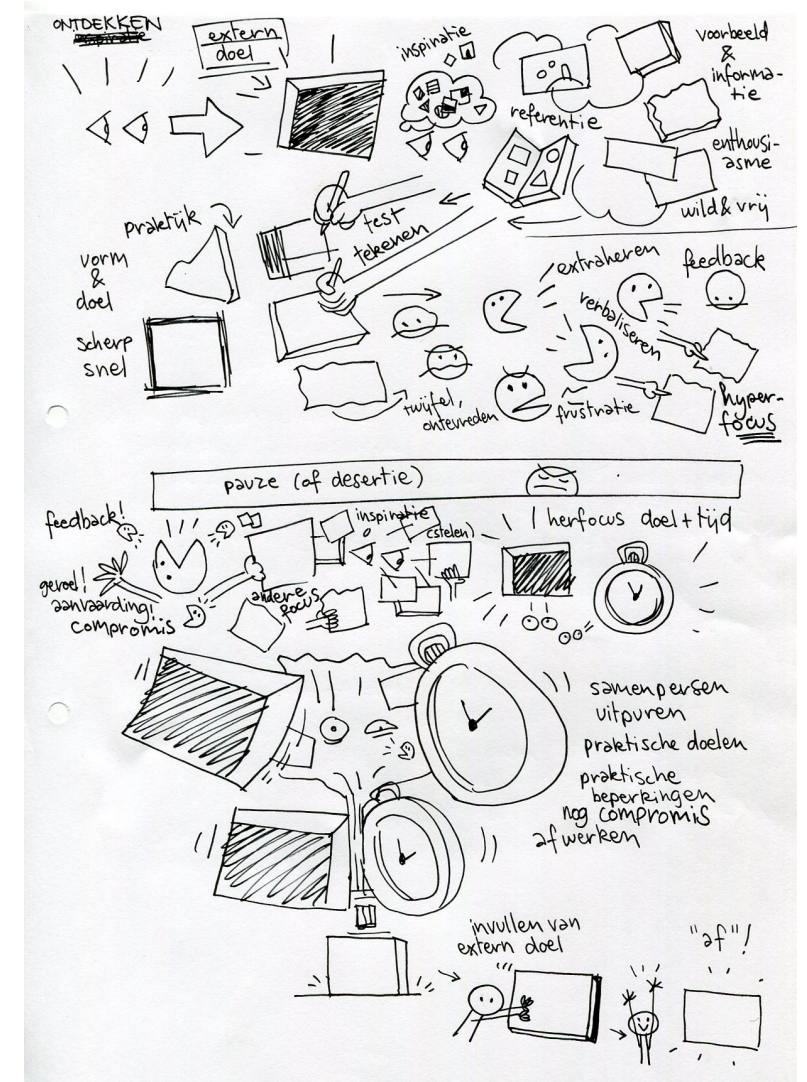 ONTDEKKEN
inspiratie
extern
doel
inspiratie
referentie
voorbeeld
&
informa-
tie
enthousi-
asme
wild & vrij
praktijk
vorm
&
doel
scherp
snel
test
tekenen
extraheren
feedback
verbaliseren
twijfel,
ontevreden
frustratie
hyper-
focus
pauze (of desertie)
feedback!
inspiratie
(stelen)
herfocus doel + tijd
gevoel!
aanvaarding!
compromis
andere
focus
samenpersen
uitpuren
praktische doelen
praktische
beperkingen
nog compromis
afwerken
invullen van
extern doel
"af"!